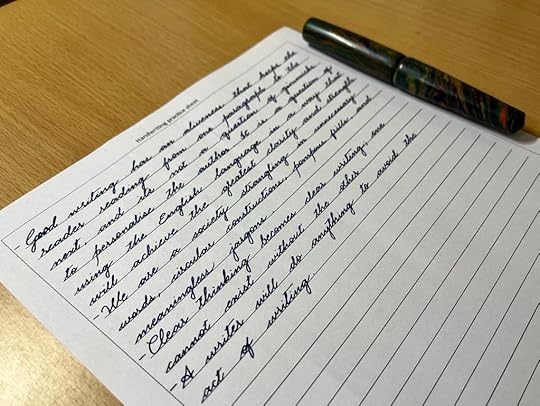 Handwriting practice sheet
Good writing has an aliveness that keeps the
reader reading from one paragraph to the
next and its not a question of gimmicks
to personalise the author. It is a question of
using the English language in a way that
will achieve the greatest clarity and strength
- We are a society strangling in unnecessary
words, circular constructions, pompous frills and
meaningless jargons.
- Clear thinking becomes clear writing; one
cannot exist without the other
- A writer will do anything to avoid the
act of writing